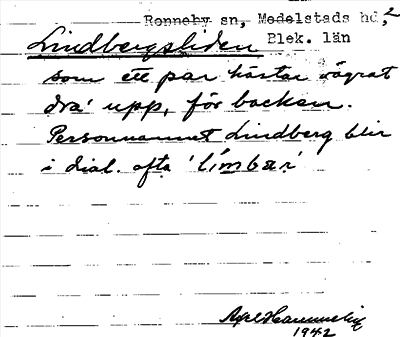 Ronneby sn, Medelstads hd, 2
Blek. län
Lindbergsliden
som ett par hästar vägrat
dra' upp, för backen.
Personnamnet Lindberg blir
i dial. ofta 'limbær'
1942